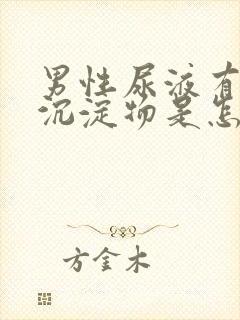 男性尿液有
沉淀物是怎
方金木